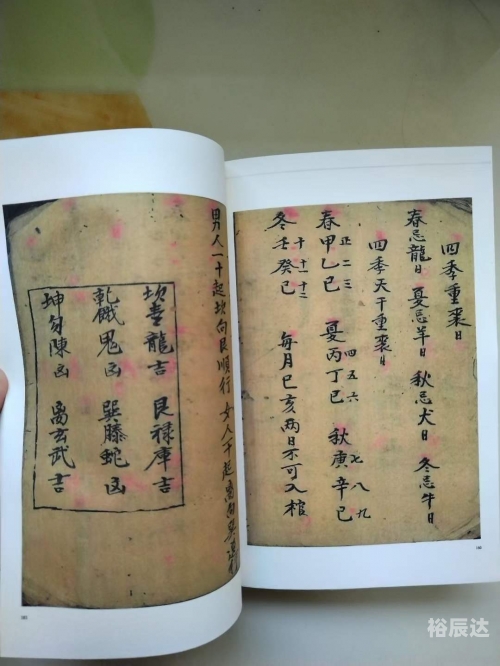 四季重喪日
春忌龍日 夏忌羊日 秋忌犬日 冬忌牛日
四季天干重喪日
正二三 四五六 七八九
春甲乙巳 夏丙丁巳 秋庚辛巳
十 十一 十二
冬壬癸巳 每月巳亥两日不可入棺
男人一十起坎向艮順行 女人一十起离向巽
坎青龍吉 艮禄庫吉
乾餓鬼凶 巽螣蛇凶
坤勾陳凶 离玄武吉
裕辰达